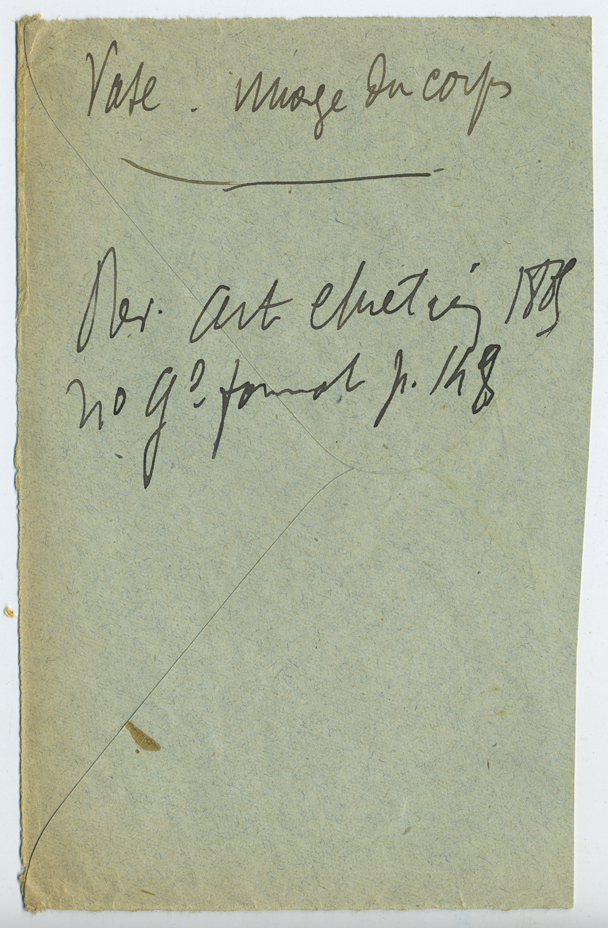 Vase . image du corps
Rev. art chrétien 188
no gd. format p. 148